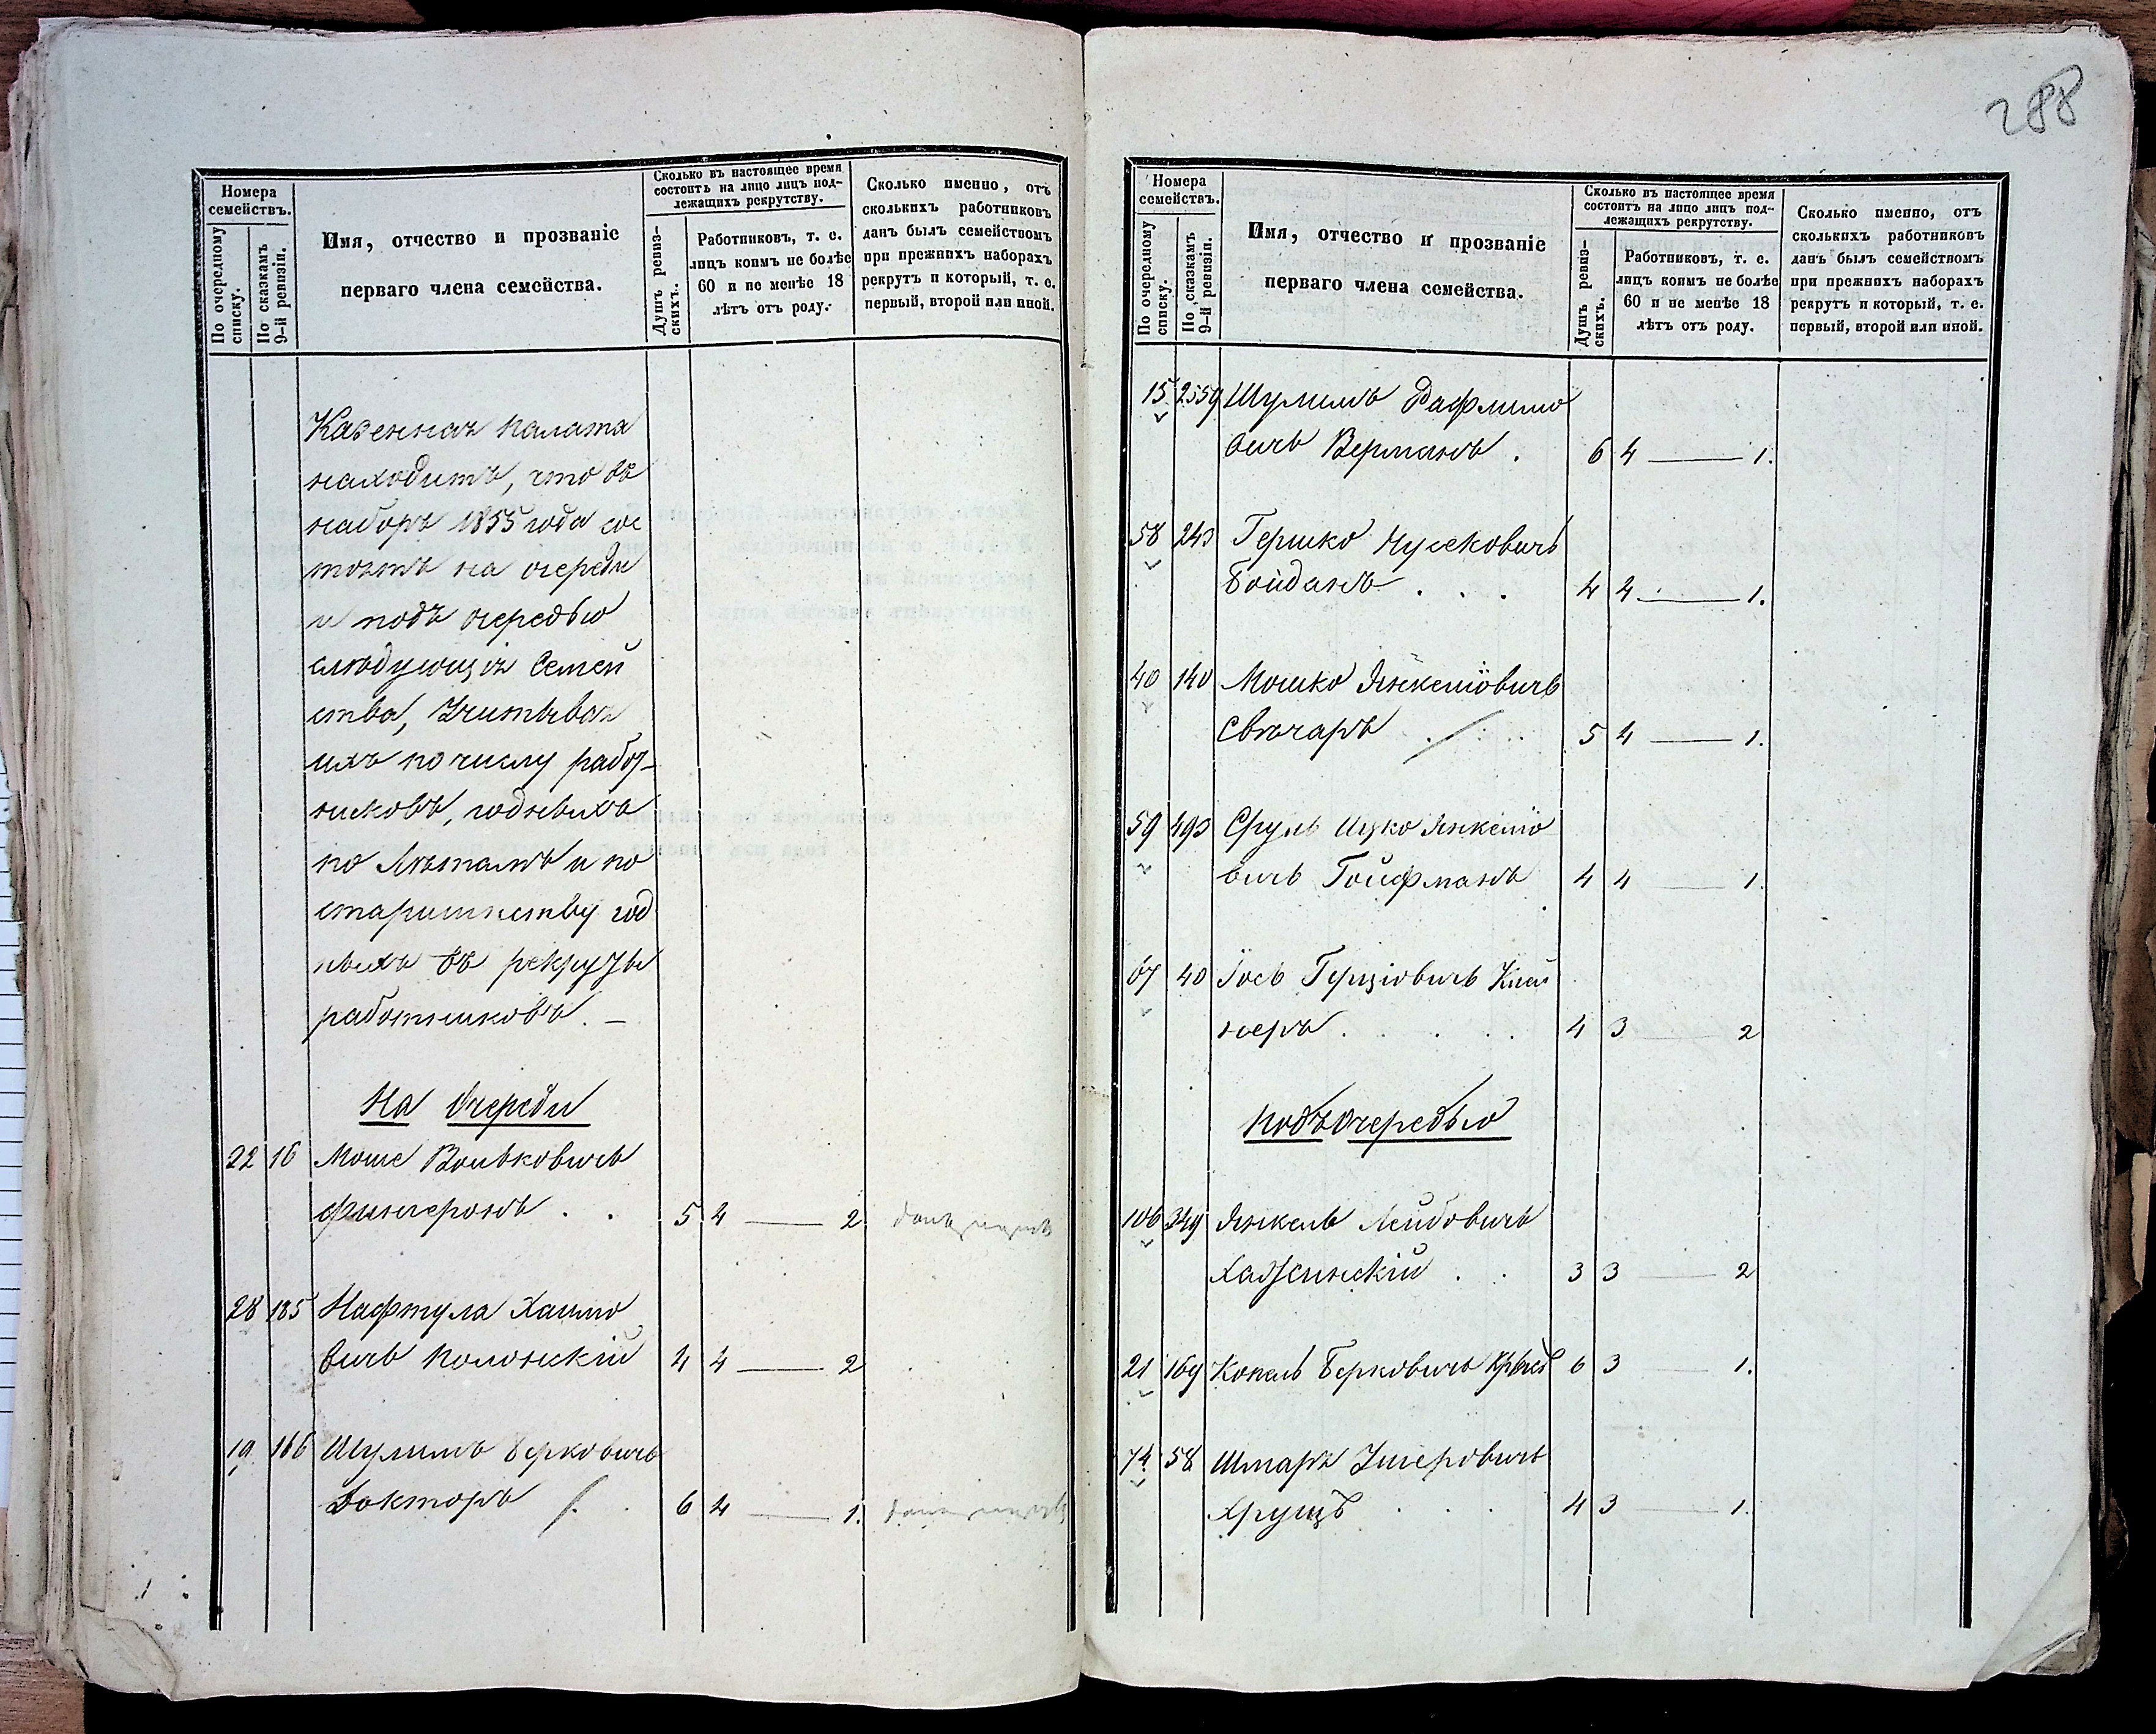 288
Номера
семействъ.
По очередному
списку.
По сказкамъ
9-й ревизіи.
Имя, отчество и прозваніе
перваго члена семейства.
Сколько въ настоящее время
состоитъ на лицо лицъ под-
лежащихъ рекрутству.
Душъ ревиз-
скихъ.
Работниковъ, т. е.
лицъ коимъ не болѣе
60 и не менѣе 18
лѣтъ отъ роду.
Сколько именно, отъ
сколькихъ работниковъ
данъ былъ семействомъ
при прежнихъ наборахъ
рекрутъ и который, т. е.
первый, второй или иной.
Казенная палата
находитъ, что въ
наборъ 1855 года сос
тоятъ на очереди
и подъ очередью
слѣдующія Семей
ства, Учитывая
ихъ по числу работ-
никовъ, годныхъ
по Лѣтамъ и по
старшинству год
ныхъ въ рекруты
работниковъ. —
На Очереди
22 16 Моше Вольковичъ
Фингеронъ . . 5 4 — 2
28 185 Нафтула Хаимо
вичъ Полонскій 4 4 — 2
19 166 Шулимъ Берковичъ
Докторъ . 6 4 — 1.
Номера
семействъ.
По очередному
списку.
По сказкамъ
9-й ревизіи.
Имя, отчество и прозваніе
перваго члена семейства.
Сколько въ настоящее время
состоитъ на лицо лицъ под-
лежащихъ рекрутству.
Душъ ревиз-
скихъ.
Работниковъ, т. е.
лицъ коимъ не болѣе
60 и не менѣе 18
лѣтъ отъ роду.
Сколько именно, отъ
сколькихъ работниковъ
данъ былъ семействомъ
при прежнихъ наборахъ
рекрутъ и который, т. е.
первый, второй или иной.
15 Шулимъ
вичъ Верманъ . 6 4 — 1.
58 243 Гершко Нусековичъ
Бойданъ . . . 4 4 — 1.
40 140 Мошко Янкеліовичъ
Свѣчаръ . . . 5 4 — 1.
59 493 Сруль Ицко Янкеліо
вичъ Гойфманъ 4 4 — 1.
67 40 Іось Герціовичъ Клей
неръ . . . . 4 3 — 2
Подъ Очередью
106 349 Янкель Лейбовичъ
. . 3 3 — 2
21 169 Копель Берковичъ 6 3 — 1.
74 58 Шмаръ Ушеровичъ
Хрущъ . . . 4 3 — 1.